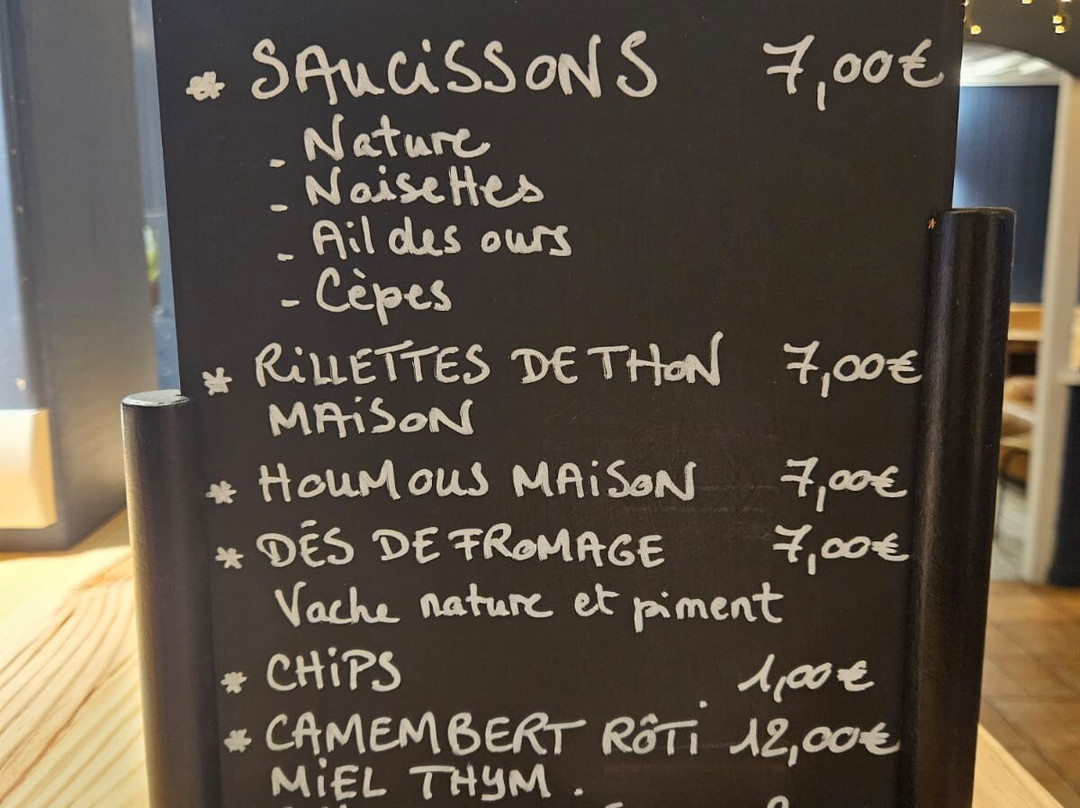 * SAUCISSONS 7,00€
- Nature
- Noisettes
- Ail des ours
- Cèpes
* RILLETTES DE THON 7,00€
MAISON
* HOUMOUS MAISON 7,00€
* DÉS DE FROMAGE 7,00€
Vache nature et piment
* CHIPS 1,00€
* CAMEMBERT RÔTI 12,00€
MIEL THYM.